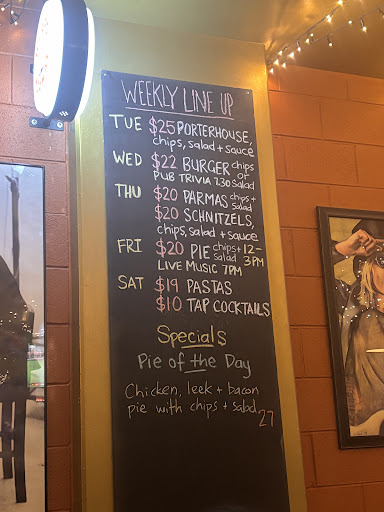 WEEKLY LINE UP
TUE $25 PORTERHOUSE,
chips, salad + sauce
WED $22 BURGER chips or salad
PUB TRIVIA 7.30
THU $20 PARMAS chips + salad
$20 SCHNITZELS,
chips, salad + sauce
FRI $20 PIE chips + salad 12-3PM
LIVE MUSIC 7PM
SAT $19 PASTAS
$10 TAP COCKTAILS
Specials
Pie of the Day
Chicken, leek + bacon
pie with chips + salad 27